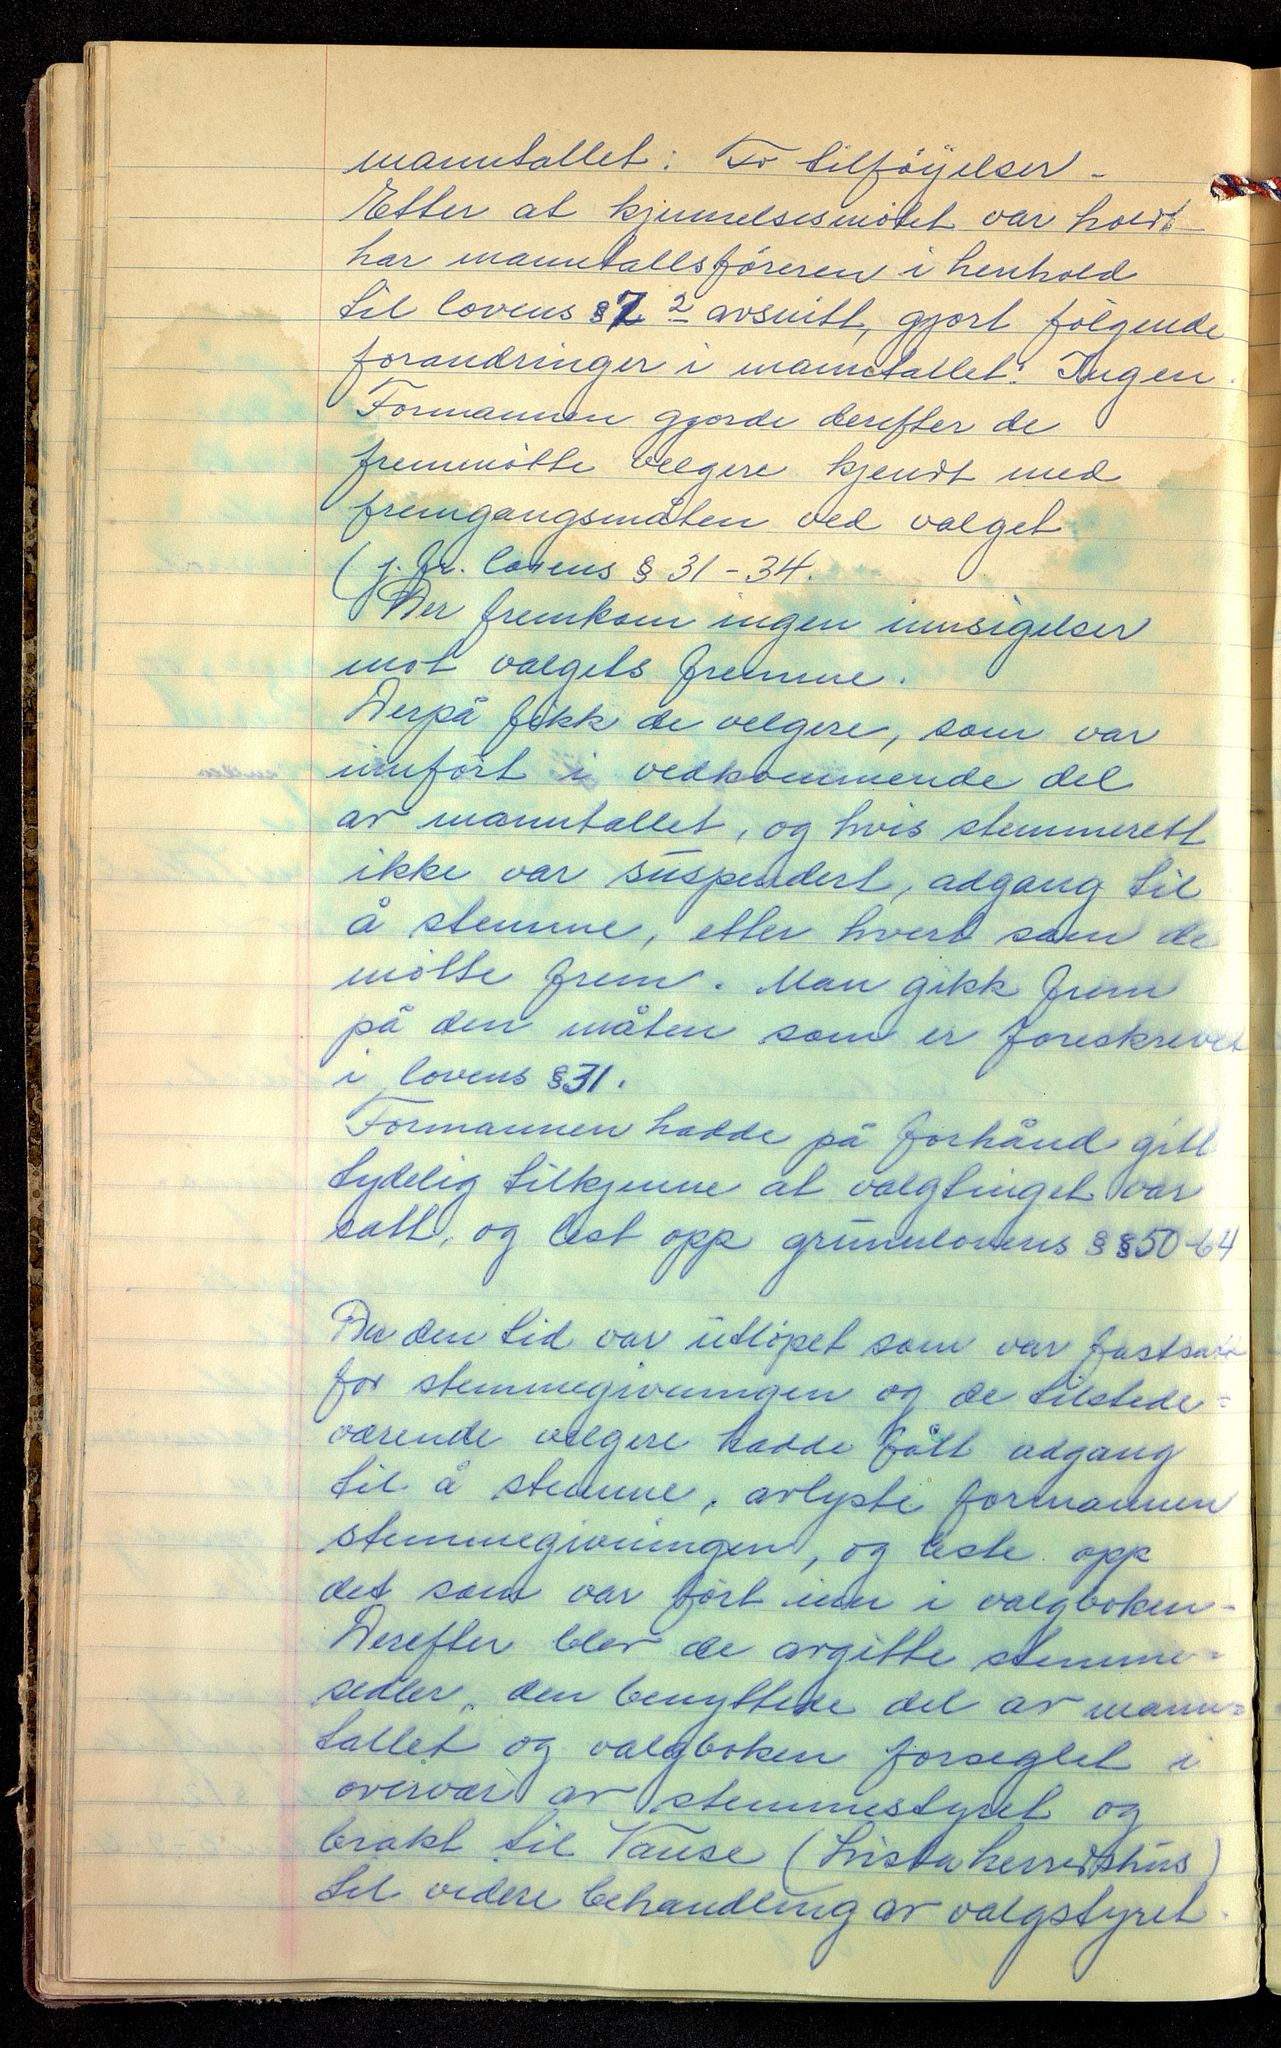 manntallet: To tilføyelser -
Etter at kjennelsesmøtet var holdt
har manntallsføreren i henhold
til lovens § 7 2 avsnitt, gjort følgende
forandringer i manntallet: Ingen.
Formannen gjorde derefter de
fremmøtte velgere kjendt med
fremgangsmåten ved valget
(j. fr. lovens § 31-34.
Der fremkom ingen innsigelser
mot valgets fremme.
Derpå fikk de velgere, som var
innført i vedkommende del
av manntallet, og hvis stemmerett
ikke var suspendert, adgang til
å stemme, etter hvert som de
møtte frem. Man gikk frem
på den måten som er foreskrevet
i lovens § 31.
Formannen hadde på forhånd gitt
tydelig tilkjenne at valgtinget var
satt, og lest opp grunnlovens § § 50-64
Da den tid var utløpet som var fastsatt
for stemmegivningen og de tilstede=
værende velgere hadde fått adgang
til å stemme, avlyste formannen
stemmegivningen, og leste opp
det som var ført inn i valgboken-
Derefter blev de avgitte stemme=
sedler, den benyttede del av mann=
tallet og valgboken forseglet i
overvær av stemmestyret og
brakt til Vanse (Lista herredshus)
til videre behandling av valgstyret.